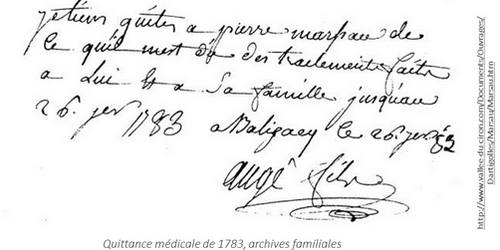 je tiens quitte a pierre marsau de
ce quil mest du des traitements faits
a Lui Et a Sa famille jusquau
26. jer 1783 a Baligacq Le 26 jer 83
augé fils
Quittance médicale de 1783, archives familiales
http://www.vallee-du-ciron.com/Documents/Ouvrages/
Dartigolles/Marsau/Marsau.htm